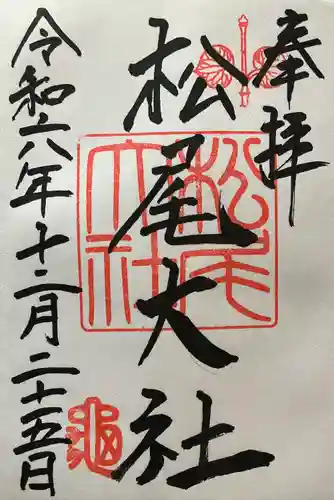 奉拝
松尾大社
松尾大社
令和六年十二月二十五日